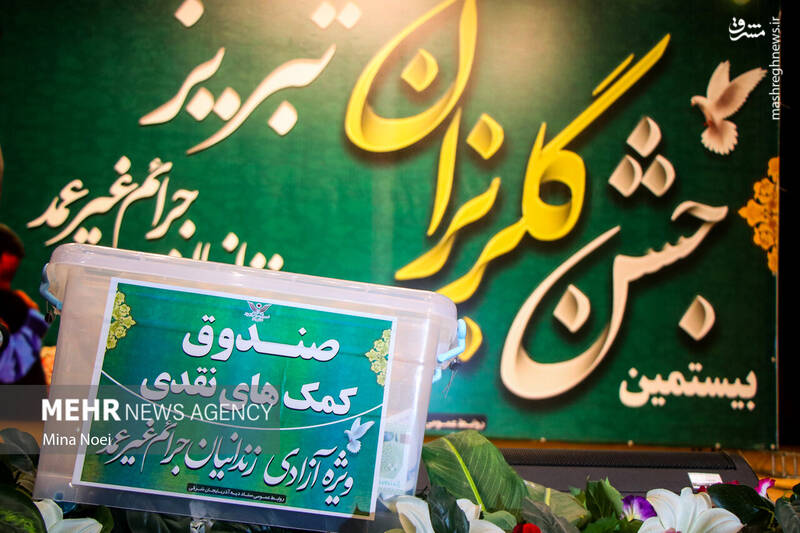 بیستمین
جشن گلریزان تبریز
جرائم غیر عمد
صندوق
کمک های نقدی
ویژه آزادی زندانیان جرائم غیر عمد
روابط عمومی ستاد دیه آذربایجان شرقی
روابط عمومی
MEHR NEWS AGENCY
Mina Noei
مشرق
mashreghnews.ir